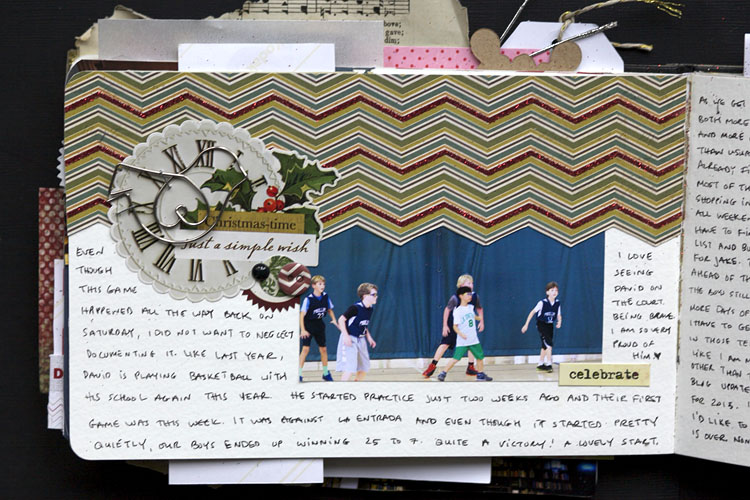 above;
gave;
dim;
XII
Christmas-time
just a simple wish
EVEN
THOUGH
THIS GAME
HAPPENED ALL THE WAY BACK ON
SATURDAY, I DID NOT WANT TO NEGLECT
DOCUMENTING IT. LIKE LAST YEAR,
DAVID IS PLAYING BASKETBALL WITH
HIS SCHOOL AGAIN THIS YEAR. HE STARTED PRACTICE JUST TWO WEEKS AGO AND THEIR FIRST
GAME WAS THIS WEEK. IT WAS AGAINST LA ENTRADA AND EVEN THOUGH IT STARTED PRETTY
QUIETLY, OUR BOYS ENDED UP WINNING 25 TO 7. QUITE A VICTORY! A LOVELY START.
I LOVE
SEEING
DAVID ON
THE COURT.
BEING BRAVE.
I AM SO VERY
PROUD OF
HIM ♥
celebrate
8
AS WE GET
BOTH MORE
AND MORE
THAN USUAL
ALREADY
MOST OF THE
SHOPPING IN
ALL WEEKE
HAVE TO FIN
LIST AND BU
FOR JAKE. T
AHEAD OF T
THE BOW STILL
MORE DAYS OF
I HAVE TO GE
IN THOSE TE
LIKE I AM
OTHER THAN T
BLOG UPDATE
FOR 2013. I
I'D LIKE TO
IS OVER. NON